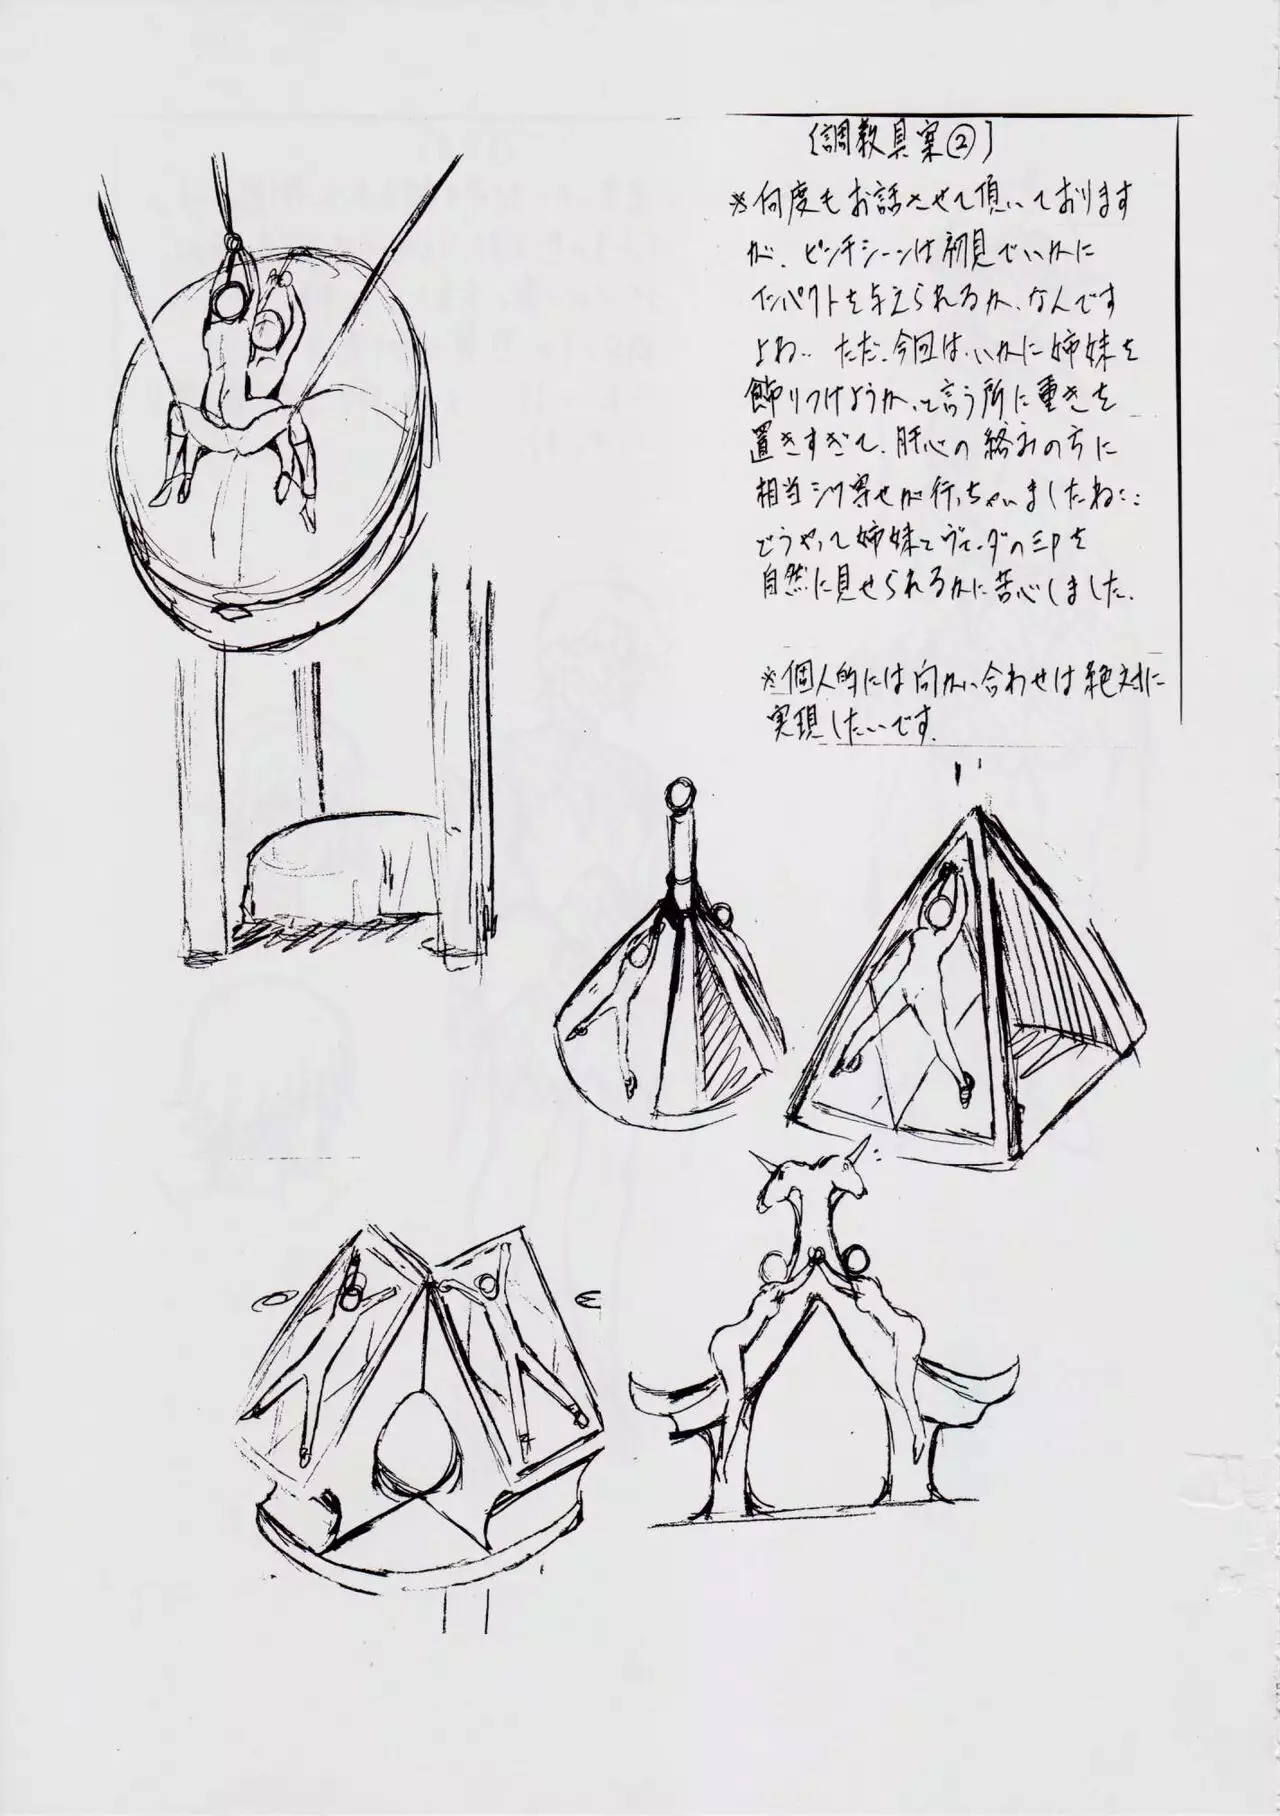 [調教具案②]
※何度もお話させて頂いております
が、ピンチシーンは初見でいかに
インパクトを与えられるか、なんです
よね‥ ただ、今回は、いかに姉妹を
飾りつけようか、と言う所に重きを
置きすぎて、肝心の絡みの方に
相当シワ寄せが行っちゃいましたね‥
どうやって姉妹とヴェーダの三Pを
自然に見せられるかに苦心しました.
※個人的には向かい合わせは絶対に
実現したいです.